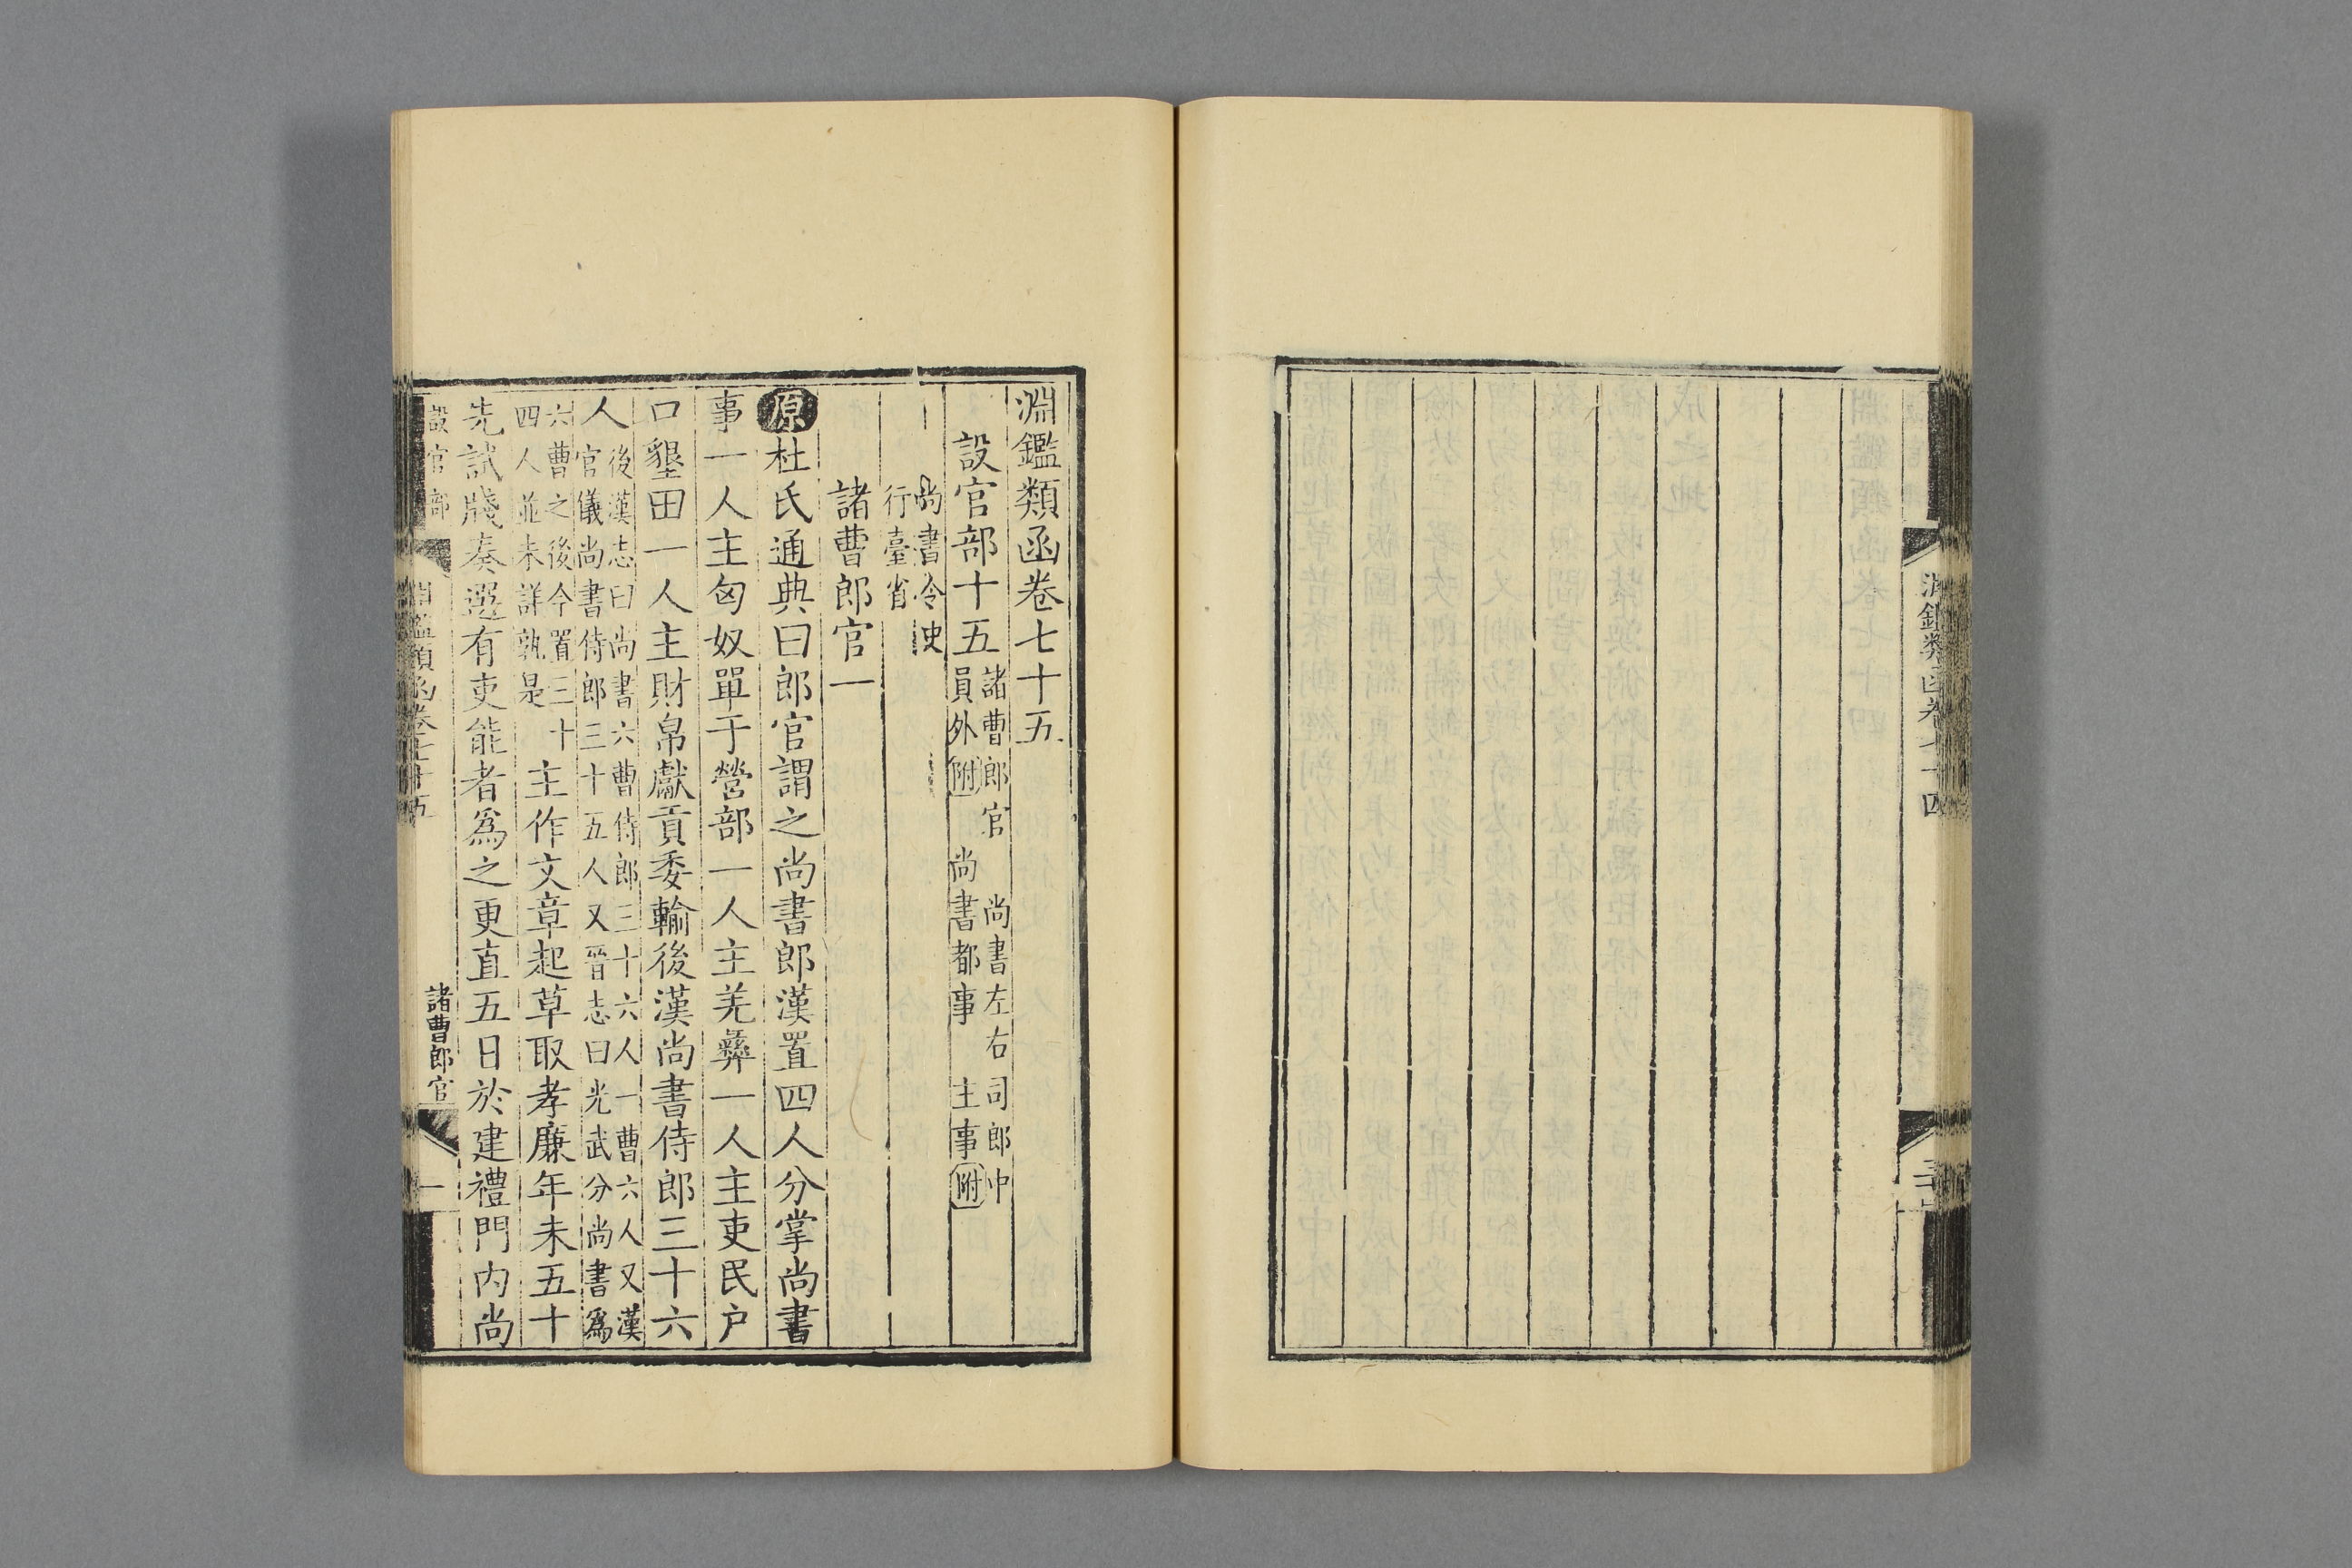 淵鑑類函卷七十四
淵鑑類函卷七十五
設官部十五諸曹郎官 尚書左右司郎中
員外附 尚書都事 主事附
尚書令史
行臺省
諸曹郎官一
原杜氏通典曰郎官謂之尚書郎漢置四人分掌尚書
事一人主匈奴單于營部一人主羌彝一人主吏民户
口墾田一人主財帛獻貢委輸後漢尚書侍郎三十六
人後漢志曰尚書六曹侍郎三十六人一曹六人又漢
官儀尚書侍郎三十五人又晉志曰光武分尚書爲
六曹之後今置三十
四人並未詳孰是主作文章起草取孝廉年未五十
先試牋奏選有吏能者爲之更直五日於建禮門内尚
設官部 淵鑑類函卷七十五 諸曹郎官 一